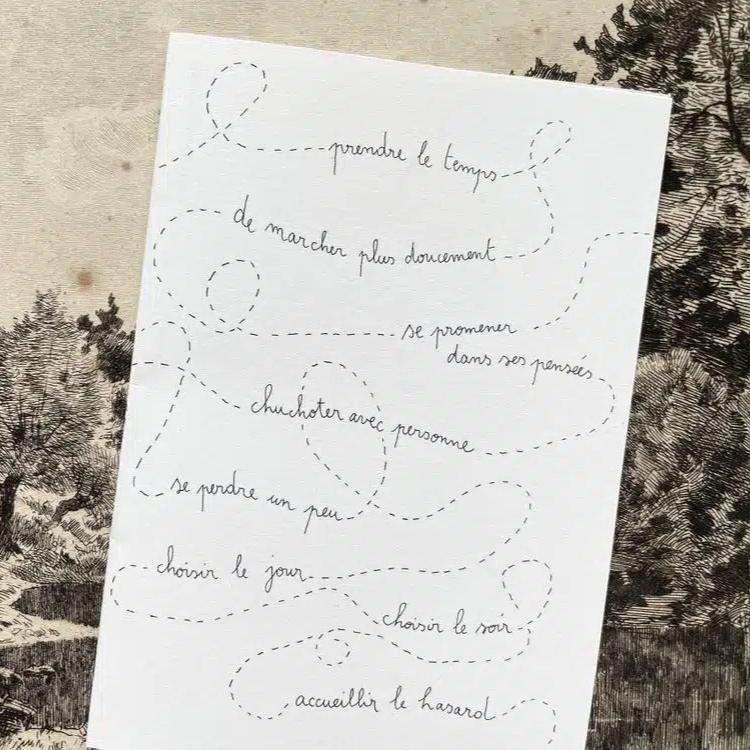 prendre le temps
de marcher plus doucement
se promener
dans ses pensées
chuchoter avec personne
se perdre un peu
choisir le jour
choisir le soir
accueillir le hasard